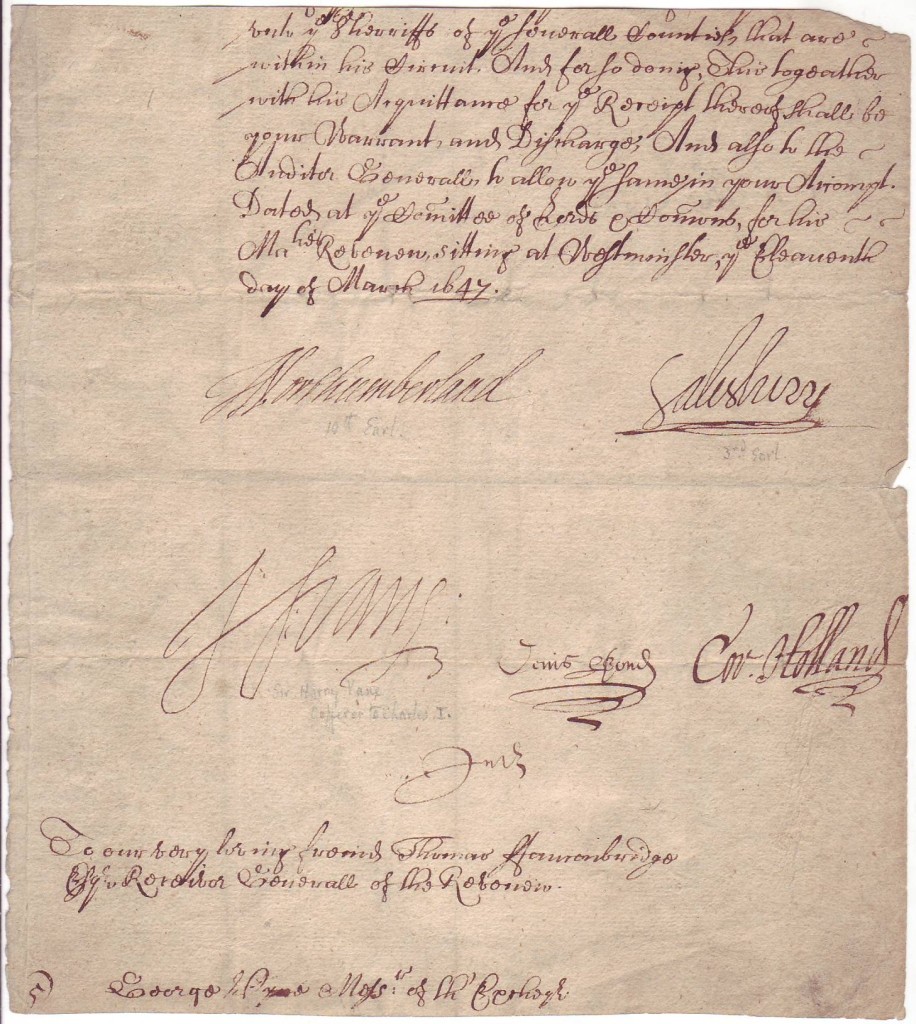 unto ye Sherriffs of ye severall Counties, that are
within his Circuit. And for so doing, This togeather
with his Acquittance for ye Receipt thereof shall be
your Warrant, and Discharge, And also to the
Auditor Generall to allow ye same in your Accompt.
Dated at ye Comittee of Lords & Comons, for his
Maties Revenew, sitting at Westminster, ye Eleaventh
day of March 1647.
Northumberland Salisbury
10th Earl. Earl.
H Vane
Denis Bond Cor: Holland
Sir Harry Vane
Cofferor to Charles I.
To our very loving freind Thomas Fauconbridge
Esqr Receivor Generall of the Revenew.
5) George Messr of the Excheqr